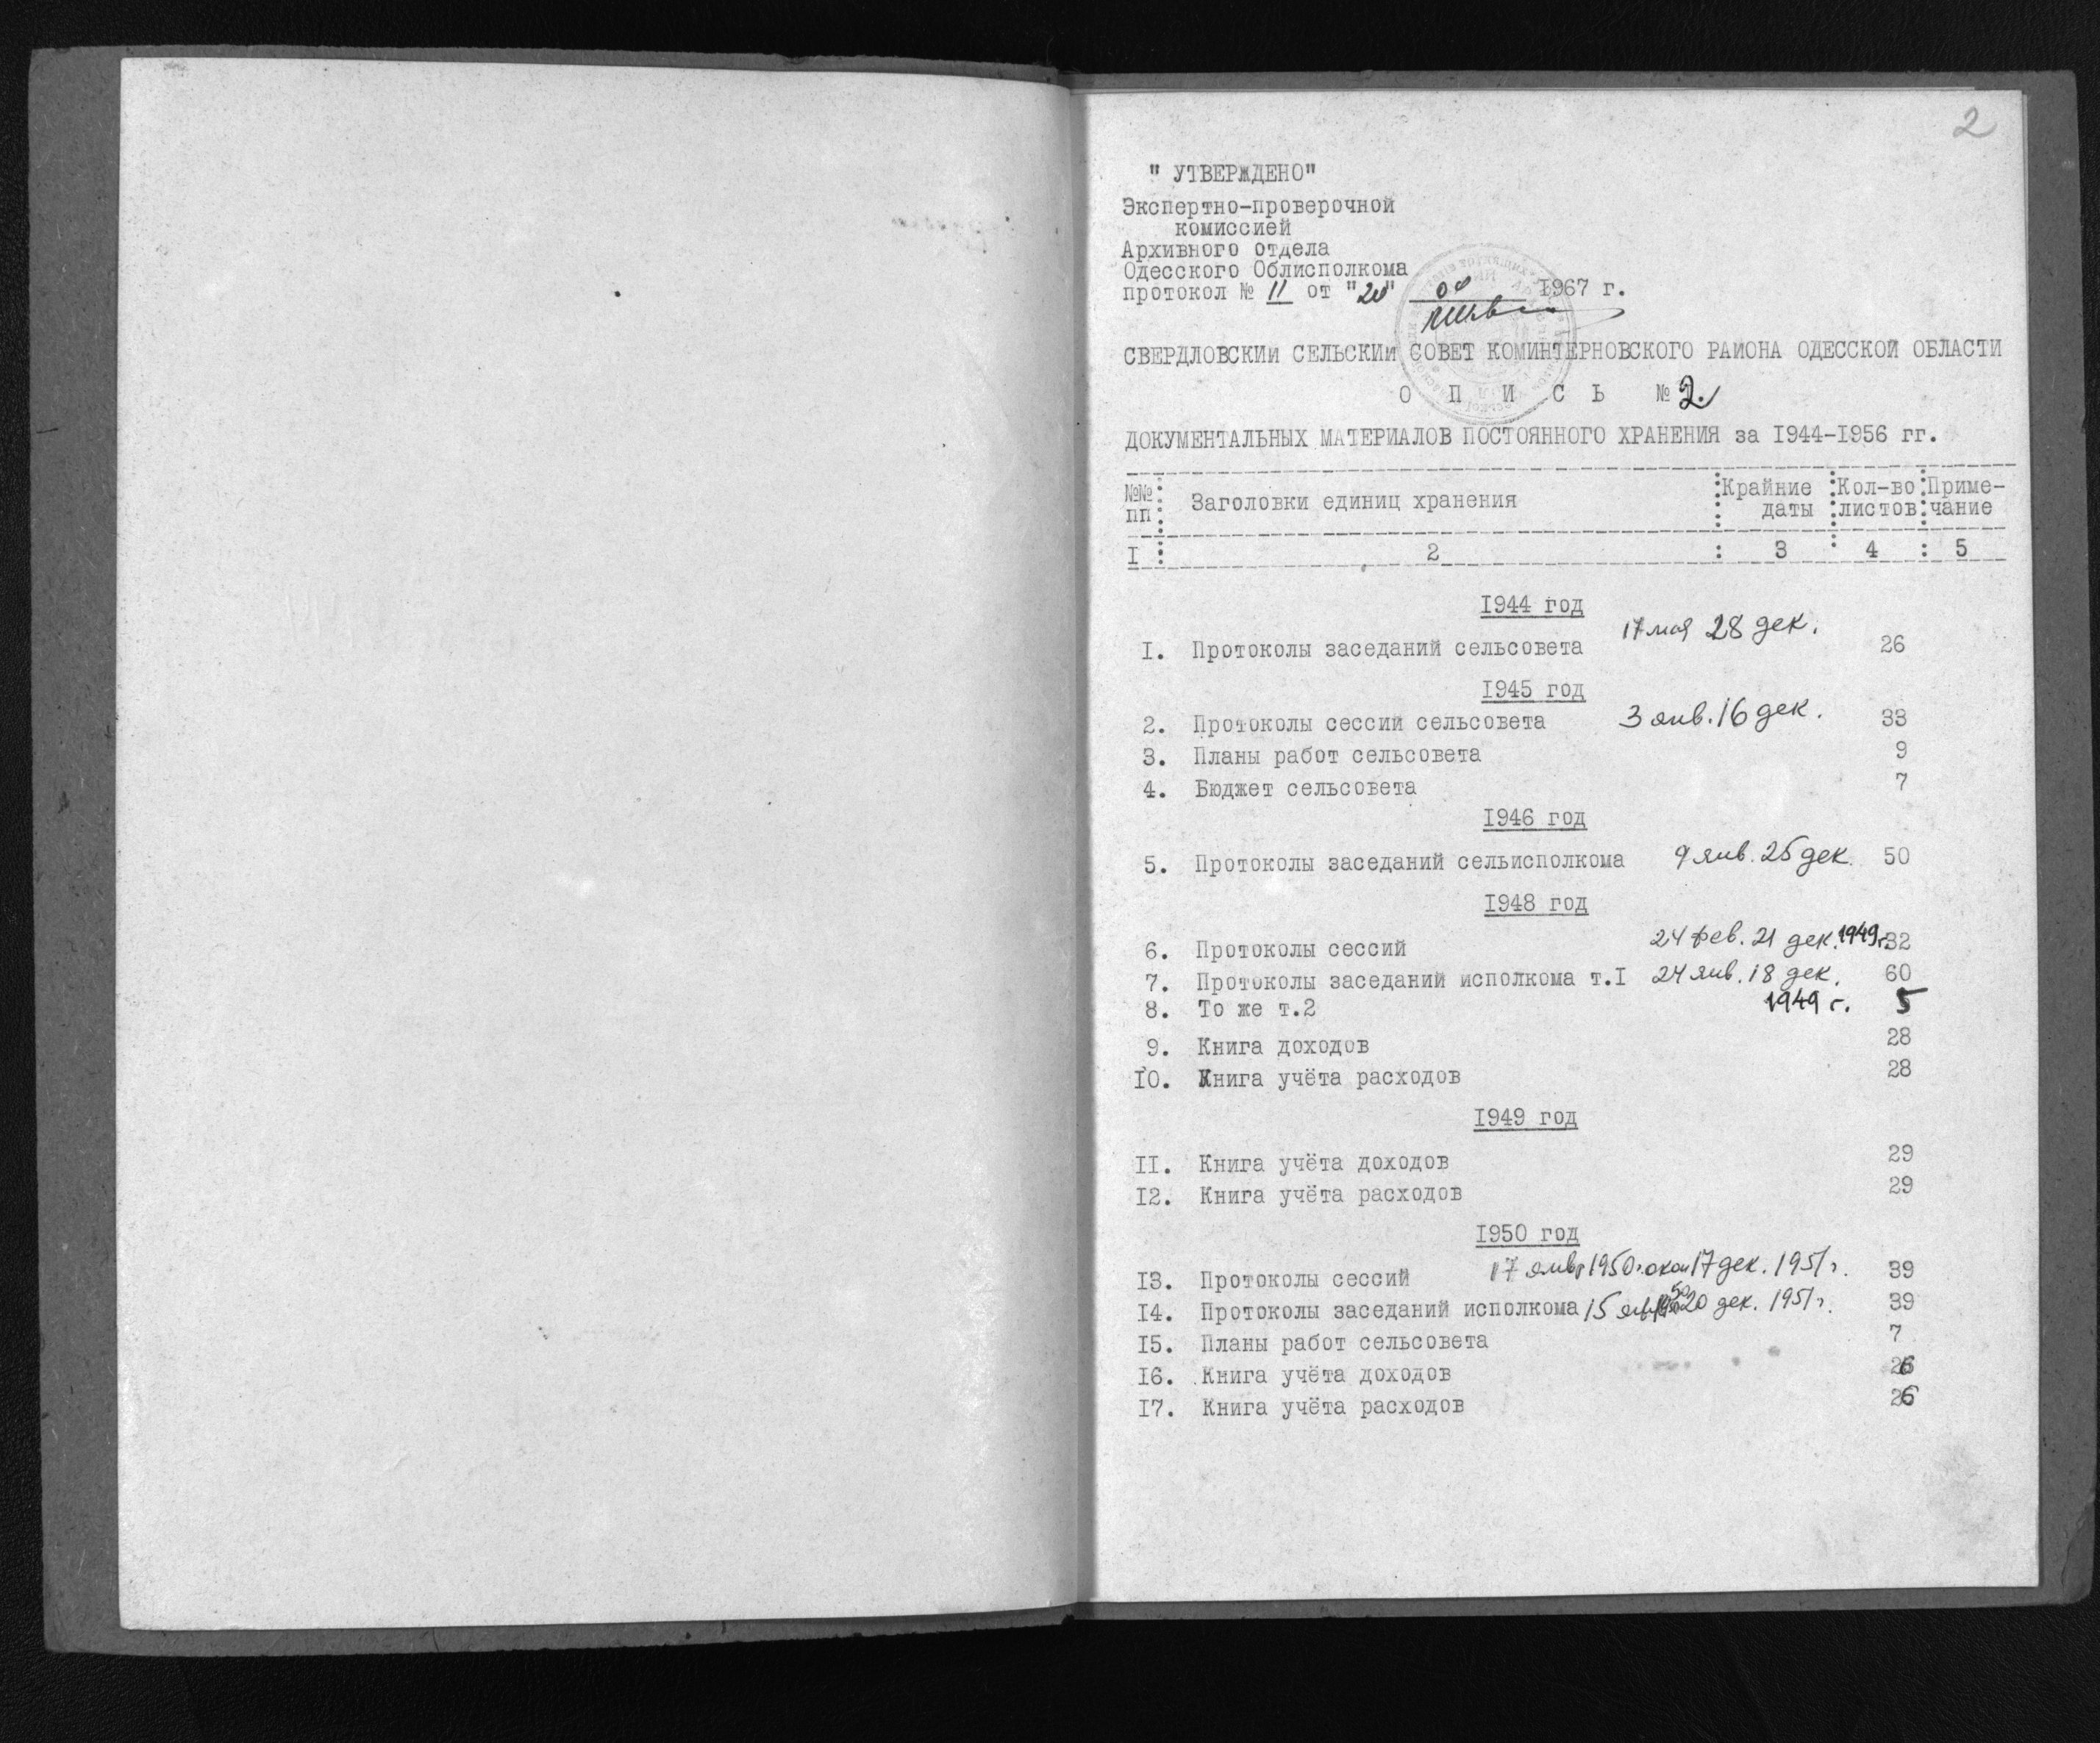 2
" УТВЕРЖДЕНО"
Экспертно-проверочной
комиссией
Архивного отдела
Одесского Облисполкома
протокол № 11 от " " 1967 г.
СВЕРДЛОВСКИй СЕЛЬСКИй СОВЕТ КОМИНТЕРНОВСКОГО РАЙОНА ОДЕССКОЙ ОБЛАСТИ
О П И С Ь № 2.
ДОКУМЕНТАЛЬНЫХ МАТЕРИАЛОВ ПОСТОЯННОГО ХРАНЕНИЯ за I944-I956 гг.
№№ пп : Заголовки единиц хранения : Крайние даты : Кол-во листов : Приме-чание
I : 2 : 3 : 4 : 5
I944 год
I. Протоколы заседаний сельсовета 17 мая 28 дек. 26
I945 год
2. Протоколы сессий сельсовета 3 янв. 16 дек. 33
3. Планы работ сельсовета 9
4. Бюджет сельсовета 7
I946 год
5. Протоколы заседаний сельисполкома 9 янв. 25 дек. 50
I948 год
6. Протоколы сессий 24 фев. 21 дек. 1949 г. 32
7. Протоколы заседаний исполкома т.I 24 янв. 18 дек. 60
8. То же т.2 1949 г. 5
9. Книга доходов 28
IO. Книга учёта расходов 28
I949 год
II. Книга учёта доходов 29
I2. Книга учёта расходов 29
I950 год
I3. Протоколы сессий 17 янв 1950 г. 17 дек. 1951 г. 39
I4. Протоколы заседаний исполкома 15 янв 20 дек. 1951 г. 39
I5. Планы работ сельсовета 7
I6. Книга учёта доходов 26
I7. Книга учёта расходов 26